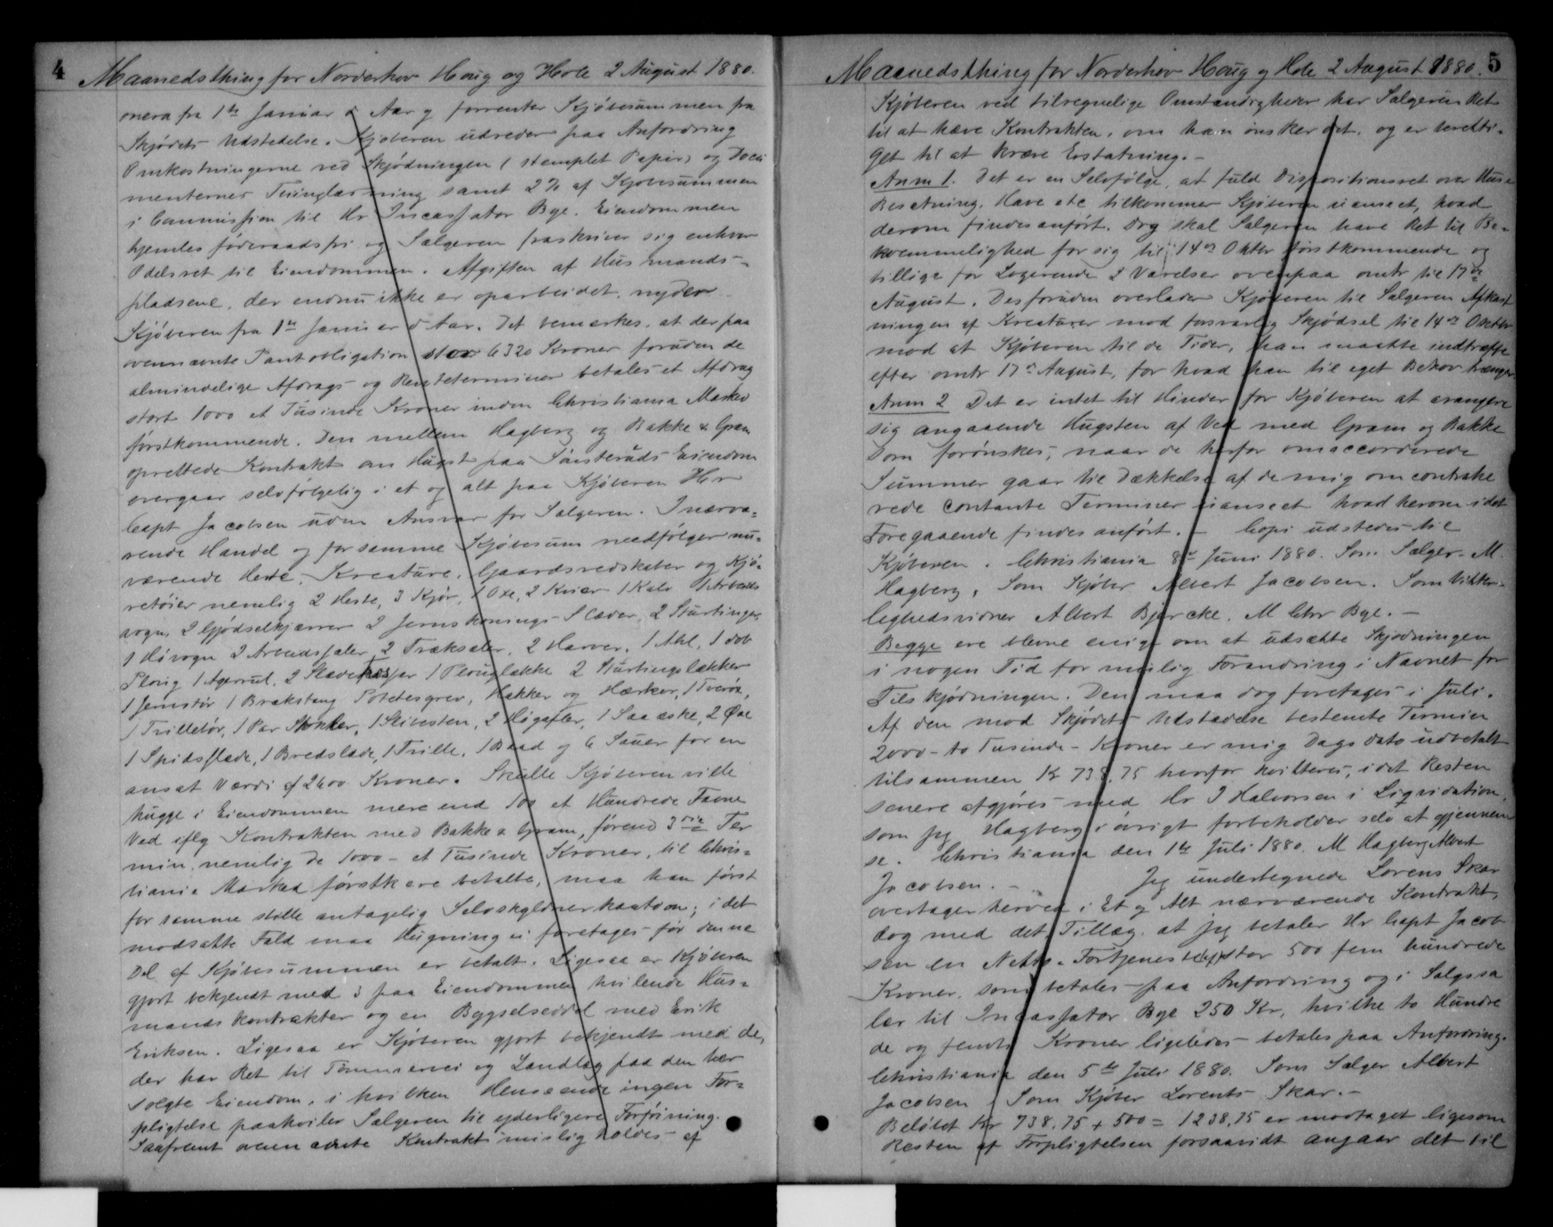 4
Maanedsthing for Norderhov Houg og Hole 2 August 1880.
onera fra 1ste Januar d Aar og forrenter Kjöbesummen fra
Skjödets Udstedelse. Kjöberen udreder paa Anfordring
Omkostningerne ved Skjödningen (stemplet Papir) og Docu
menternes Thinglæsning samt 2% af Kjöbesummen
i Commission til Hr Incassator Bye. Eiendommen
hjemles föderaadsfri og Sælgeren fraskriver sig enhver
Odelsret til Eiendommen. Afgiften af Husmands-
pladsene, der endnu ikke er oparbeidet, nyder
Kjöberen fra 1ste Januar d Aar. Det bemærkes, at der paa
ovennævnte Pantobligation stor 6320 Kroner foruden de
almindelige Afdrags- og Renteterminer betales et Afdrag
stort 1000 et Tusinde Kroner inden Christiania Marked
förstkommende. Den mellem Hagberg og Bakke & Gram
oprettede Kontrakt om Hugst paa Eiendom
overgaar selvfölgelig i et og alt paa Kjöberen Hr
Capt Jacobsen uden Ansvar for Sælgeren. I nærvæ-
rende Handel og for samme Kjöbesum medfölger nu-
værende Heste, Kreature, Gaardsredskaber og Kjö-
retöier nemlig 2 Heste, 3 Kjör, 1 Oxe, 2 Kvier 1 Kalv 1 Arbeids
vogn, 2 Gjödselkjærrer 2 Slæder, 2 Stöttinger
1 Hövogn 2 Arbeidssæler 2 Træksæler, 2 Harver, 1 Ahl, 1
Ploug 1 2 1 Plouglække 2 Stöttingslækker
1 Jernstör 1 Brækstang Potetesgrev, Hakker og Hærker,
1 Trillebör, 1 Par 1 Slibesten, 2 Högafler, 1 2 Öxe
1 Spidsslæde, 1 Bredslæde, 1 Trille, 1 Baad og 6 Sauer for en
ansat Værdi af 2400 Kroner. Skulde Kjöberen ville
hugge i Eiendommen mere end 100 et Hundrede Favne
Ved iflg Kontrakten med Bakke & Gram, förend 3die Ter
min, nemlig de 1000 - et Tusinde Kroner, til Chris-
tiania Marked förstk ere betalte, maa han först
for samme stille antagelig Selvskyldnerkaution; i det
modsatte Fald maa Hugning ei foretages för denne
Del af Kjöbesummen er betalt. Ligesaa er Kjöberen
gjort bekjendt med 3 paa Eiendommen hvilende Hus-
mandskontrakter og en Bygselseddel med Erik
Eriksen. Ligesaa er Kjöberen gjort bekjendt med de,
der har Ret til Tömmervei og Landlæg paa den her
solgte Eiendom, i hvilken Henseende ingen For-
pligtelse paahviler Sælgeren til yderligere Forföining.
Saafremt ovennævnte Kontrakt misligholdes af
5
Maanedsthing for Norderhov Houg og Hole 2 August 1880.
Kjöberen ved tilregnelige Omstændigheder har Sælgeren Ret
til at hæve Kontrakten, om han önsker det, og er beretti-
get til at kræve Erstatning.-
Anm 1. Det er en Selvfölge, at fuld Dispositionsret over Huse
Besætning, Have etc tilkommer Kjöberen uanseet, hvad
derom findes anfört. Dog skal Sælgeren have Ret til Be-
kvemmelighed for sig til 14de Oktbr förstkommende og
tillige for Logerende 2 Værelser ovenpaa omtr til 17de
August. Desforuden overlader Kjöberen til Sælgeren Afkast
ningen af Kreaturer mod forsvarlig Skjödsel til 14de Oktbr
mod at Kjöberen til de Tider, han maatte indtræffe
efter omtr 17de August, faar hvad han til eget Behov trænger.
Anm 2 Det er intet til Hinder for Kjöberen at arrangere
sig angaaende Hugsten af Ved med Gram og Bakke
som forönskes, naar de herfor omaccorderede
Summer gaar til Dækkelse af de mig omcontrahe
rede contante Terminer uanseet hvad herom i det
Foregaaende findes anfört. - Copi udstedes til
Kjöberen. Christiania 8de Juni 1880. Som Sælger M.
Hagberg. Som Kjöber Albert Jacobsen. Som Vitter-
lighedsvidner Albert Bjercke. M Chr Bye.-
Begge ere blevne enige om at udsætte Skjödningen
i nogen Tid for mulig Forandring i Navnet for
Tilskjödningen. Den maa dog foretages i Juli.
Af den mod Skjödets Udstedelse bestemte Termin
2000 - to Tusinde - Kroner er mig Dags Dato udbetalt
tilsammen Kr 738.75 hvorfor kvitteres, idet Resten
senere afgjöres med Hr J Halvorsen i Liqvidation,
som jeg Hagberg i övrigt forbeholder selv at gjennem
se. Christiania den 1ste Juli 1880. M Hagberg Albert
Jacobsen. - Jeg undertegnede Lorens Skar
overtager herved i Et og Alt nærværende Kontrakt,
dog med det Tillæg, at jeg betaler Hr Capt Jacob
sen en Netto-Fortjeneste stor 500 fem hundrede
Kroner, som betales paa Anfordring og i Salgssa
lær til Incassator Bye 250 Kr, hvilke to Hundre
de og femti Kroner ligeledes betales paa Anfordring.
Christiania den 5te Juli 1880. Som Sælger Albert
Jacobsen. Som Kjöber Lorents Skar.-
Belöbet Kr 738.75 + 500 = 1238.75 er modtaget ligesom
Resten af Forpligtelsen forsaavidt angaar det til